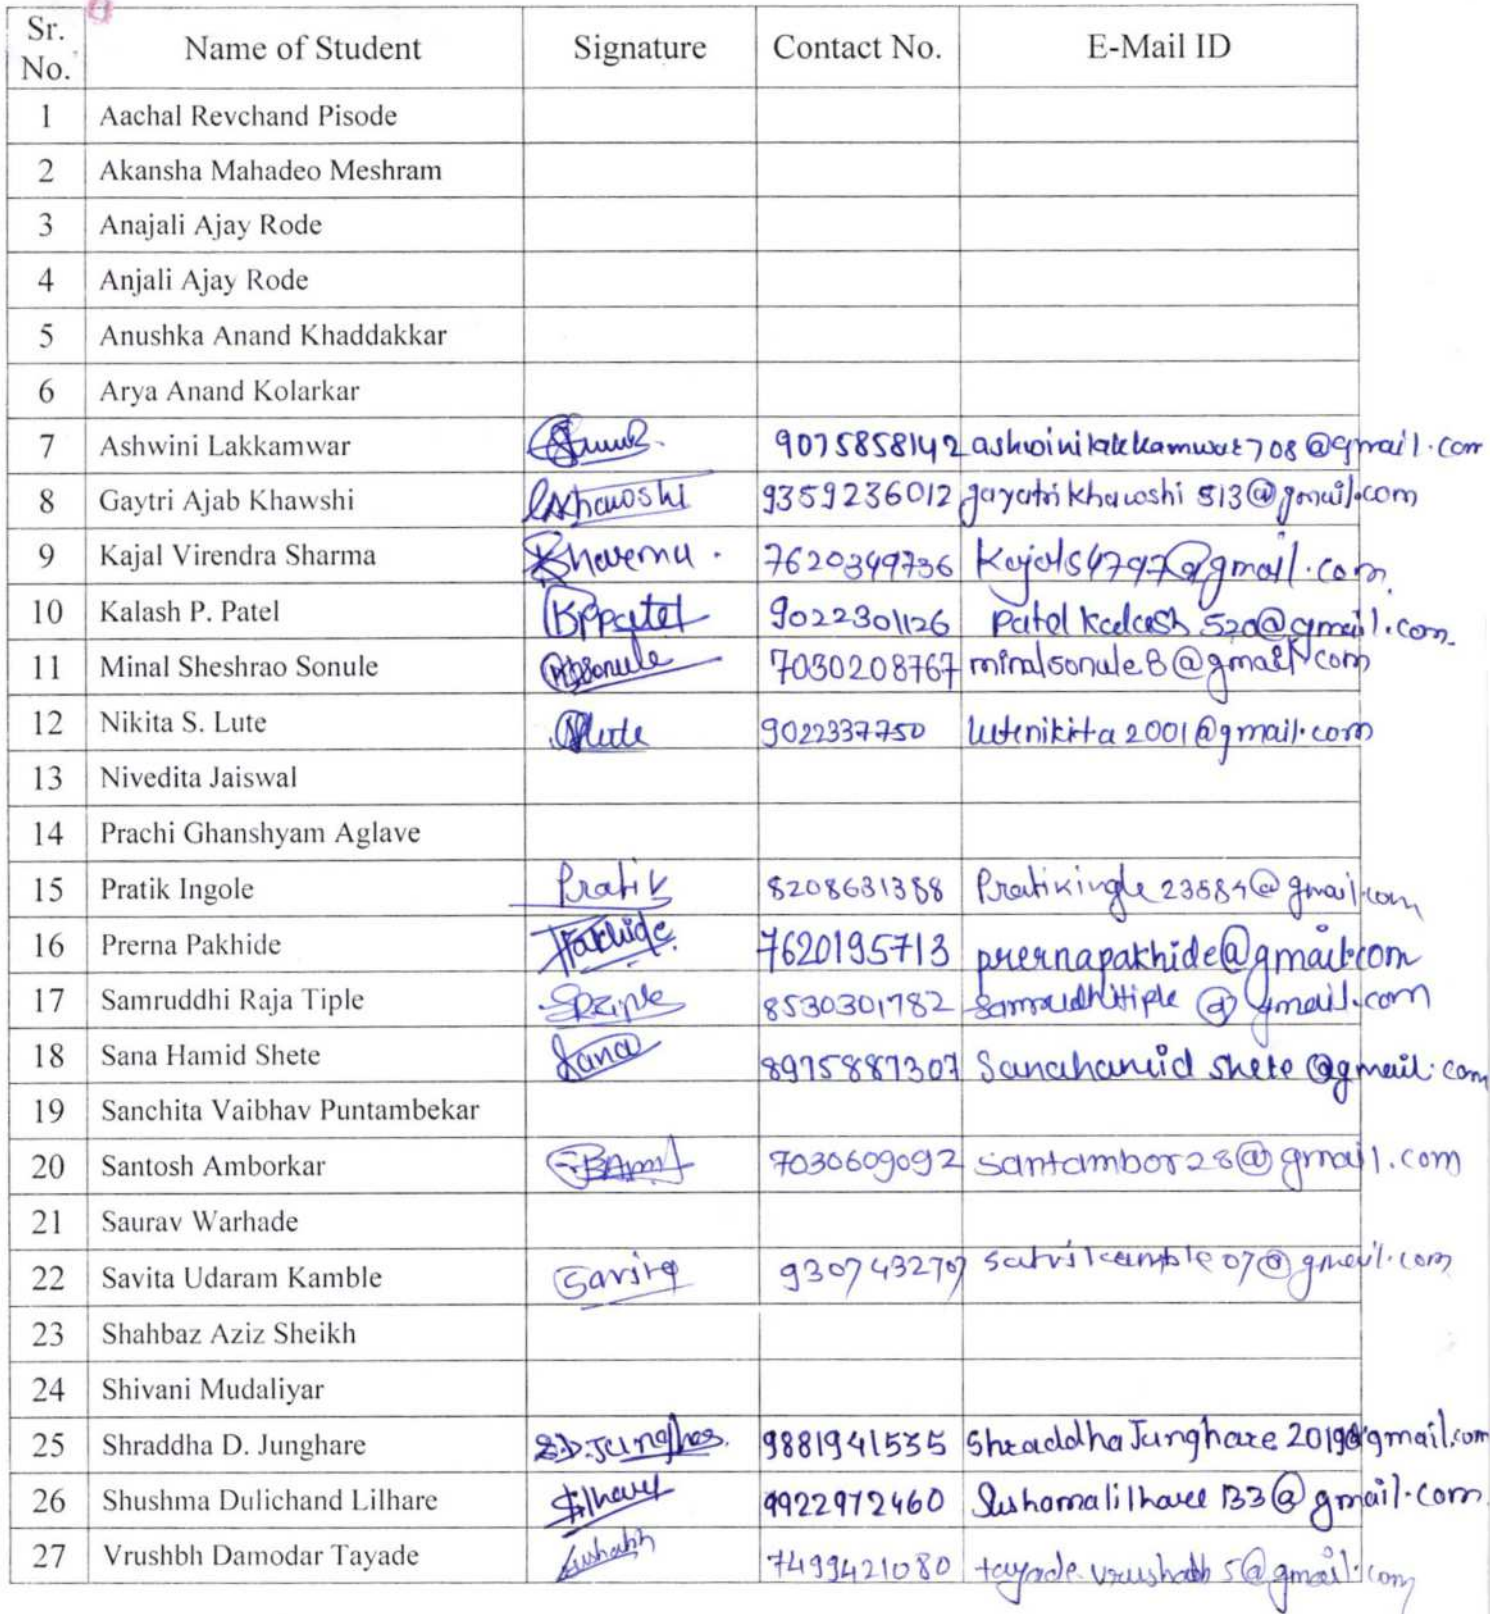 Sr. No. Name of Student Signature Contact No. E-Mail ID
1 Aachal Revchand Pisode
2 Akansha Mahadeo Meshram
3 Anajali Ajay Rode
4 Anjali Ajay Rode
5 Anushka Anand Khaddakkar
6 Arya Anand Kolarkar
7 Ashwini Lakkamwar 9075858142 ashwinilakkamwar708@gmail.com
8 Gaytri Ajab Khawshi Khawoshi 9359236012 gayatrikhawoshi513@gmail.com
9 Kajal Virendra Sharma 7620349736 Kajals4797@gmail.com
10 Kalash P. Patel KPPatel 9022301126 patelkalash520@gmail.com
11 Minal Sheshrao Sonule Sonule 7030208767 minalsonule8@gmail.com
12 Nikita S. Lute Lute 9022337750 lutenikita2001@gmail.com
13 Nivedita Jaiswal
14 Prachi Ghanshyam Aglave
15 Pratik Ingole Pratik 8208631388 Pratikingle23584@gmail.com
16 Prerna Pakhide Pakhide 7620195713 prernapakhide@gmail.com
17 Samruddhi Raja Tiple SRTiple 8530301782 Samrudhitiple@gmail.com
18 Sana Hamid Shete Sana 8975887307 Sanahamid shete@gmail.com
19 Sanchita Vaibhav Puntambekar
20 Santosh Amborkar 7030609092 santambor28@gmail.com
21 Saurav Warhade
22 Savita Udaram Kamble Savita 9307432707 satvikamble07@gmail.com
23 Shahbaz Aziz Sheikh
24 Shivani Mudaliyar
25 Shraddha D. Junghare S.D.Junghare 9881941535 ShraddhaJunghare2019@gmail.com
26 Shushma Dulichand Lilhare Slhare 9922972460 Sushamalilhare133@gmail.com
27 Vrushbh Damodar Tayade 7499421080 tayade.vrushabh5@gmail.com